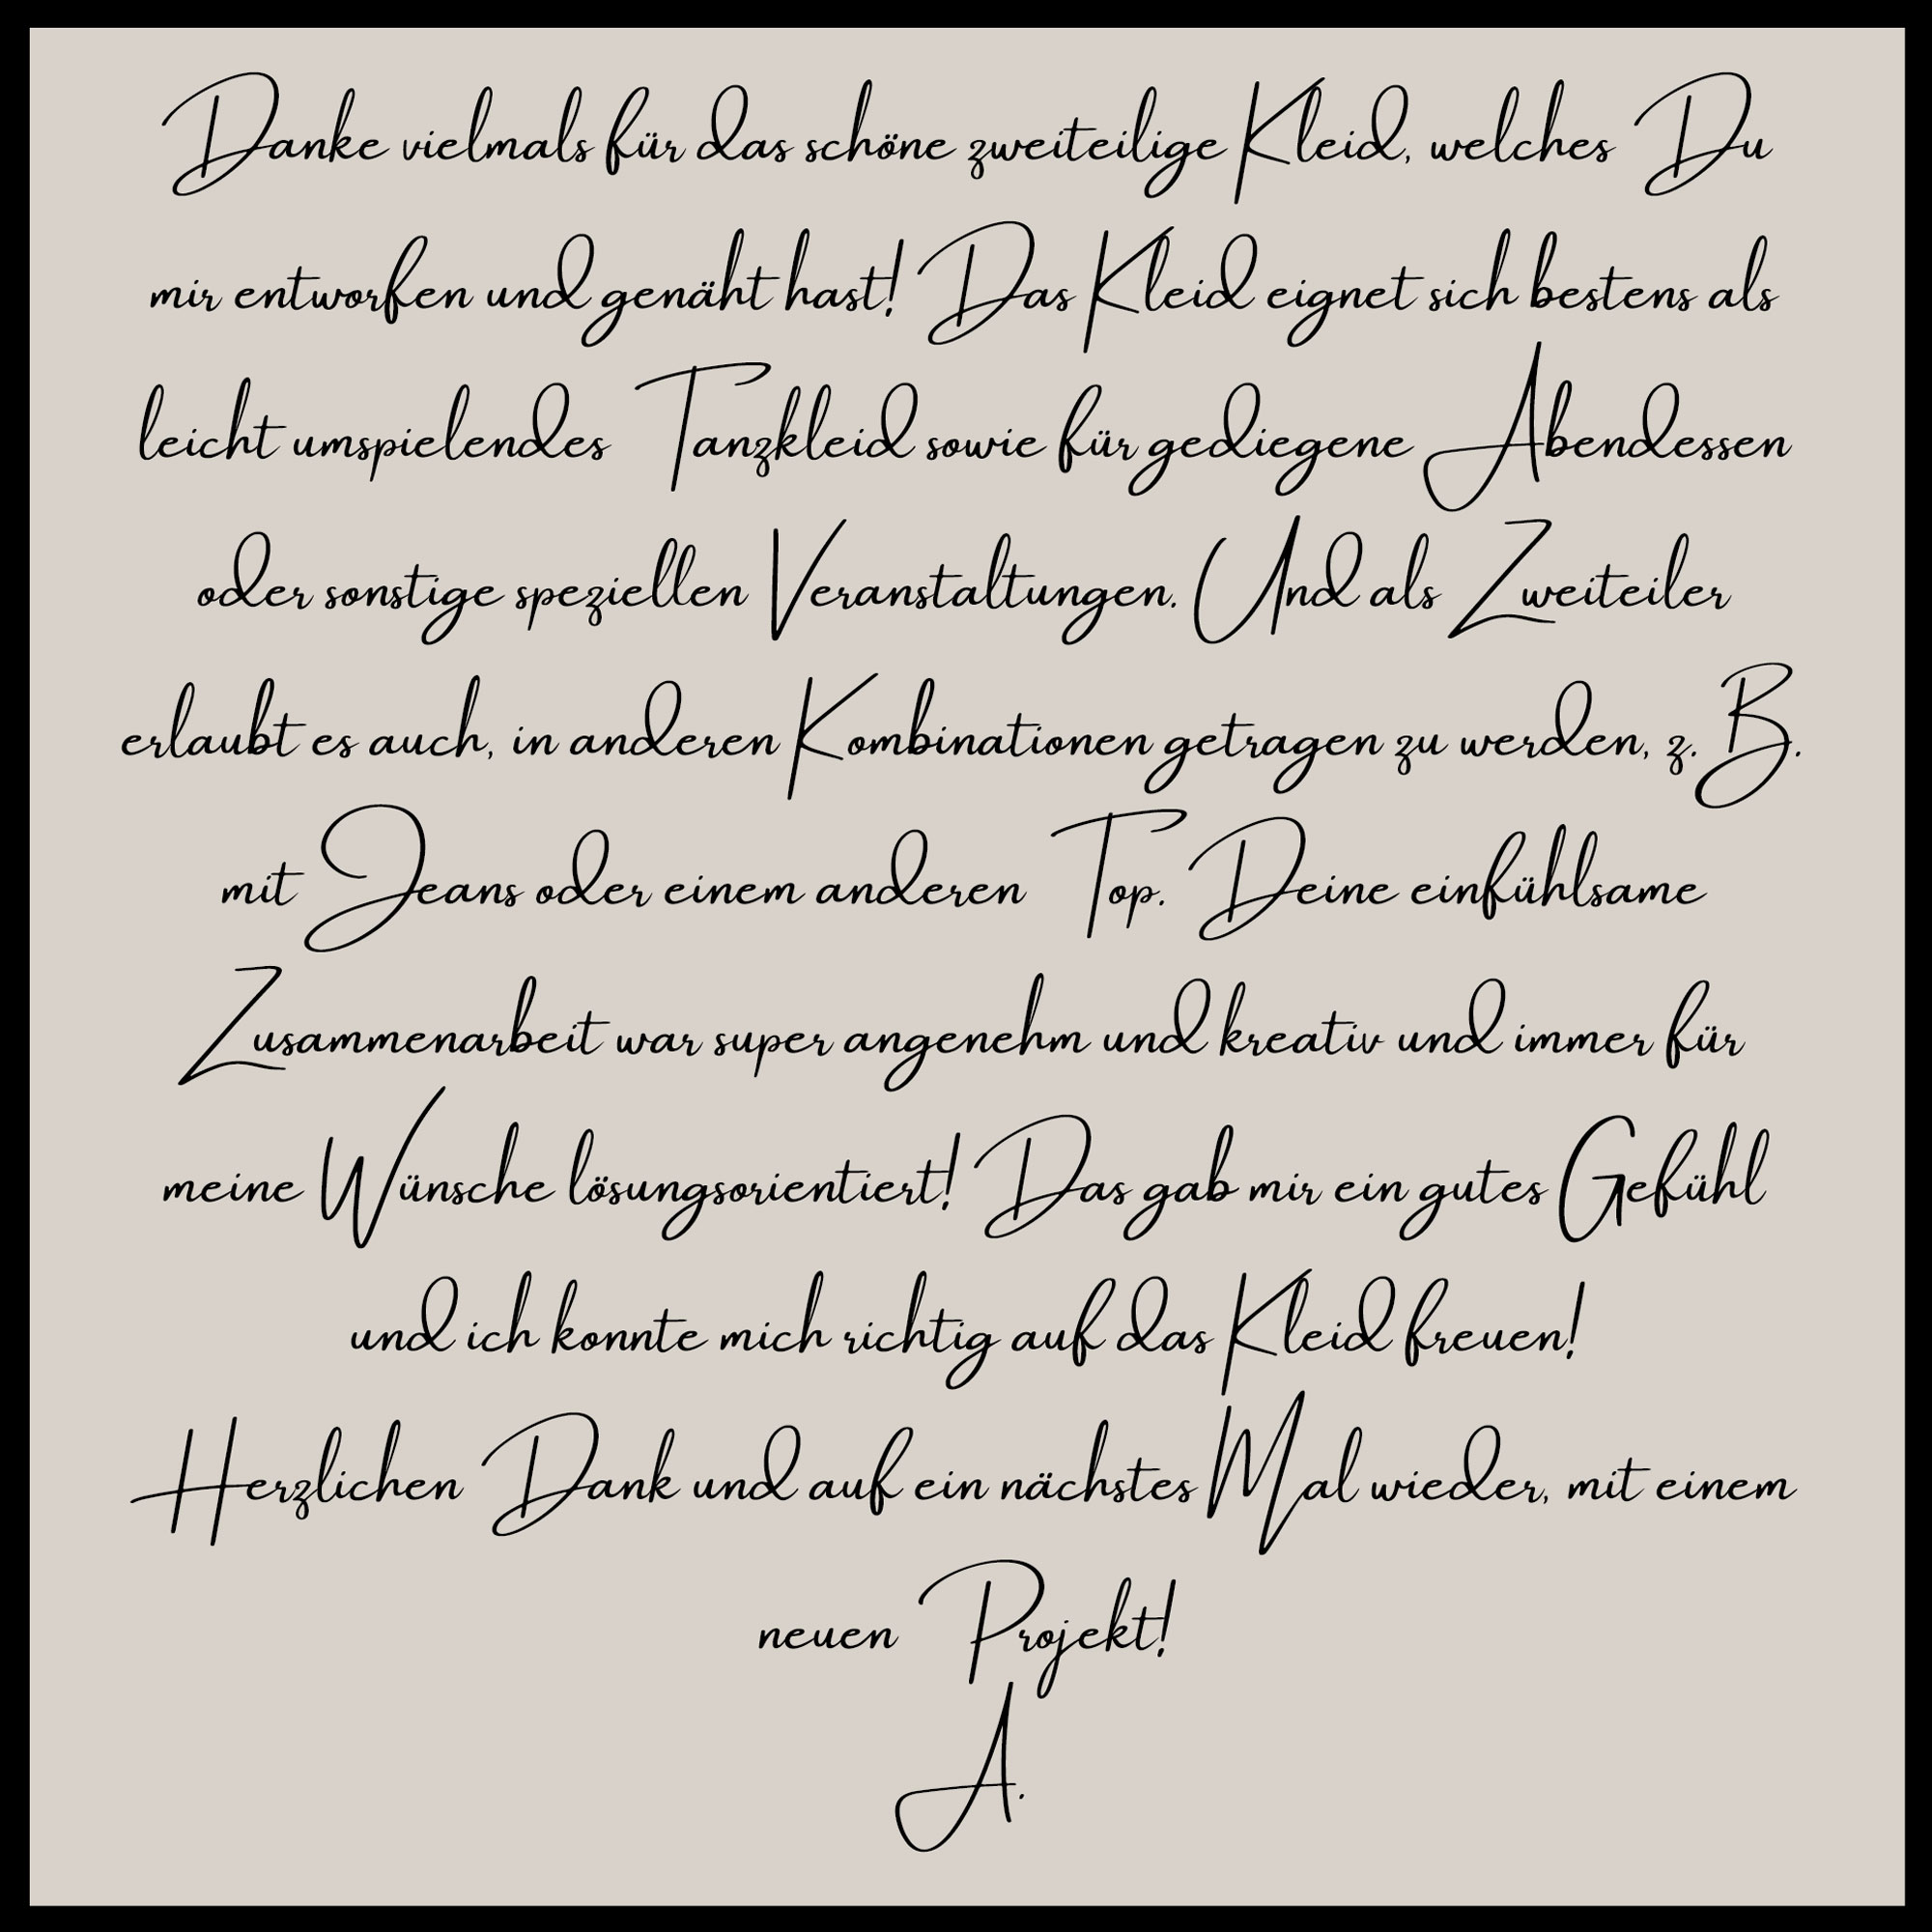 Danke vielmals für das schöne zweiteilige Kleid, welches Du
mir entworfen und genäht hast! Das Kleid eignet sich bestens als
leicht umspielendes Tanzkleid sowie für gediegene Abendessen
oder sonstige speziellen Veranstaltungen. Und als Zweiteiler
erlaubt es auch, in anderen Kombinationen getragen zu werden, z. B.
mit Jeans oder einem anderen Top. Deine einfühlsame
Zusammenarbeit war super angenehm und kreativ und immer für
meine Wünsche lösungsorientiert! Das gab mir ein gutes Gefühl
und ich konnte mich richtig auf das Kleid freuen!
Herzlichen Dank und auf ein nächstes Mal wieder, mit einem
neuen Projekt!
A.